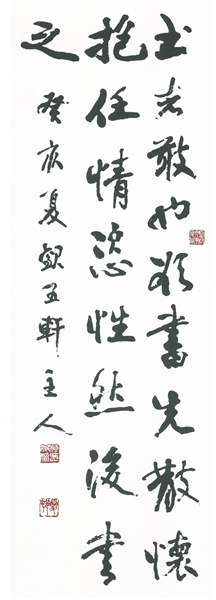 书者散也欲書先散懷
抱任情恣性然後书
之
癸亥夏軒主人